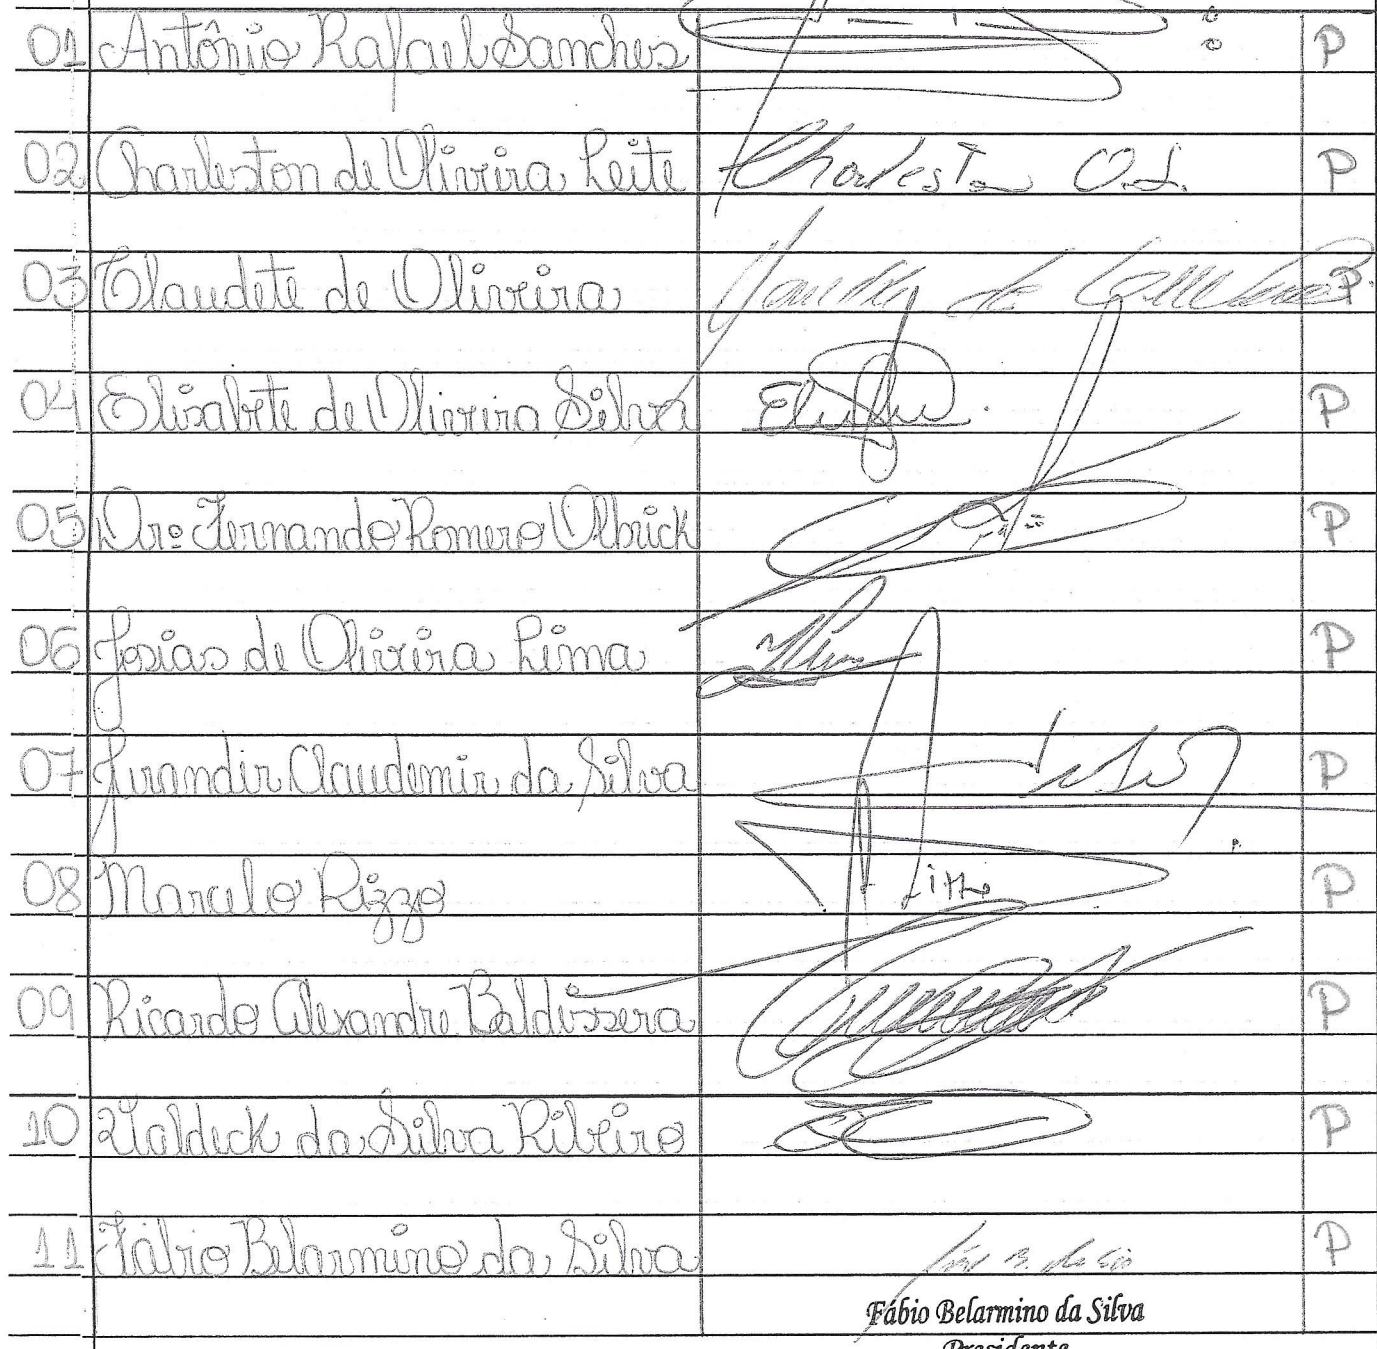 01 Antônio Rafael Sanches P
02 Charleston de Oliveira Leite Charleston O.L. P
03 Claudete de Oliveira P
04 Elisabete de Oliveira Silva P
05 Drº Fernando Romero Olbrick P
06 Josias de Oliveira Lima P
07 Jurandir Claudemir da Silva P
08 Marcelo Rizzo P
09 Ricardo Alexandre Baldissera P
10 Waldeck da Silva Ribeiro P
11 Fábio Belarmino da Silva P
Fábio Belarmino da Silva
Presidente